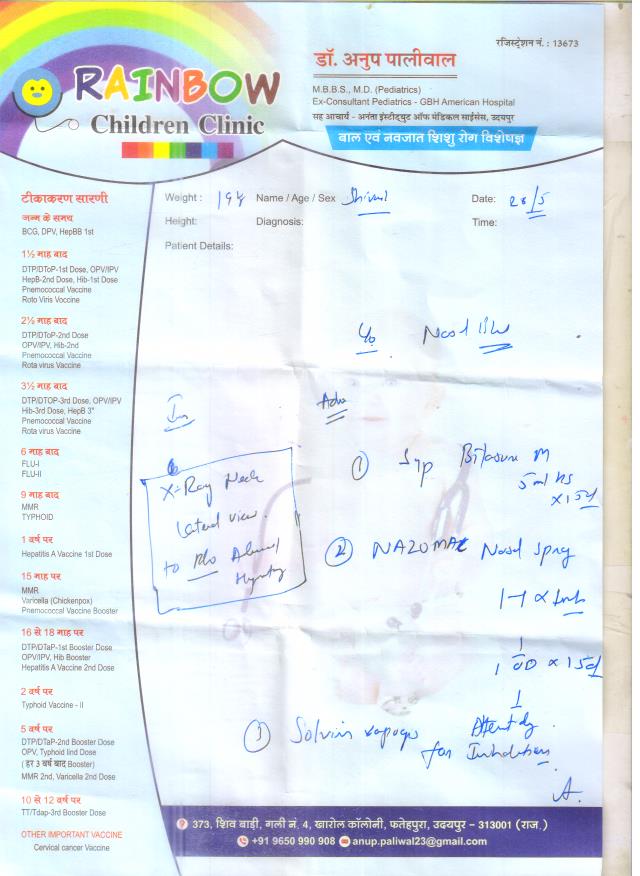 रजिस्ट्रेशन नं. : 13673
RAINBOW
Children Clinic
डॉ. अनुप पालीवाल
M.B.B.S., M.D. (Pediatrics)
Ex-Consultant Pediatrics - GBH American Hospital
सह आचार्य - अनंता इंस्टीट्युट ऑफ मेडिकल साईंसेस, उदयपुर
बाल एवं नवजात शिशु रोग विशेषज्ञ
Weight : Name / Age / Sex Date: 28/5
Height: Diagnosis: Time:
Patient Details:
टीकाकरण सारणी
जन्म के समय
BCG, DPV, HepBB 1st
1½ माह बाद
DTP/DToP-1st Dose, OPV/IPV
HepB-2nd Dose, Hib-1st Dose
Pnemococcal Vaccine
Roto Viris Voccine
2½ माह बाद
DTP/DToP-2nd Dose
OPV/IPV, Hib-2nd
Pnemococcal Vaccine
Rota virus Vaccine
3½ माह बाद
DTP/DTOP-3rd Dose, OPV/IPV
Hib-3rd Dose, HepB 3"
Pnemococcal Vaccine
Rota virus Vaccine
6 माह बाद
FLU-I
FLU-II
9 माह बाद
MMR
TYPHOID
1 वर्ष पर
Hepatitis A Vaccine 1st Dose
15 माह पर
MMR
Varicella (Chickenpox)
Pnemococcal Vaccine Booster
16 से 18 माह पर
DTP/DTaP-1st Booster Dose
OPV/IPV, Hib Booster
Hepatitis A Vaccine 2nd Dose
2 वर्ष पर
Typhoid Vaccine - II
5 वर्ष पर
DTP/DTaP-2nd Booster Dose
OPV, Typhoid IInd Dose
( हर 3 वर्ष बाद Booster)
MMR 2nd, Varicella 2nd Dose
10 से 12 वर्ष पर
TT/Tdap-3rd Booster Dose
OTHER IMPORTANT VACCINE
Cervical cancer Vaccine
Adv
X-Ray Neck
Lateral view.
to R/o
① Syp M
5 ml HS
② Nasal Spray
③ Solvin
for Inhalation
373, शिव बाड़ी, गली नं. 4, खारोल कॉलोनी, फतेहपुरा, उदयपुर - 313001 (राज.)
+91 9650 990 908 anup.paliwal23@gmail.com